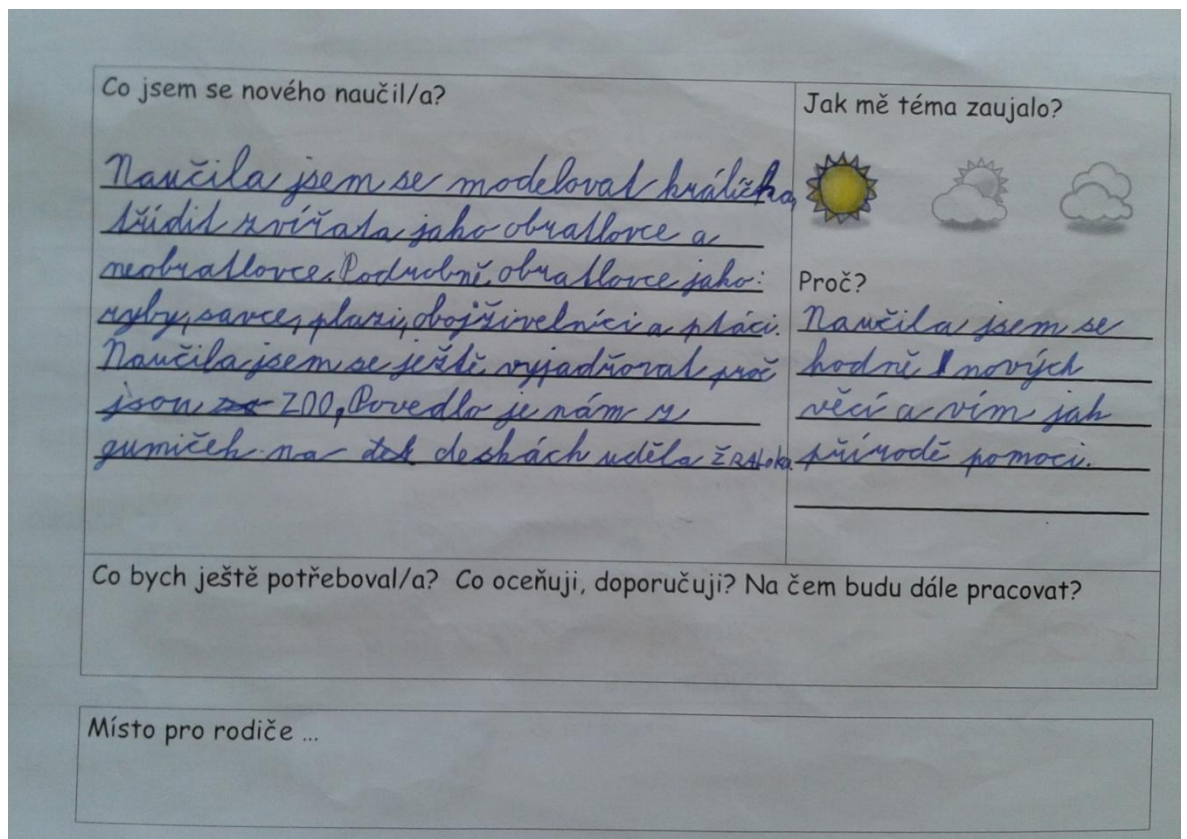 Co jsem se nového naučil/a?
Naučila jsem se modelovat králíčka,
třídit zvířata jako obratlovce a
neobratlovce. Podrobně obratlovce jako:
ryby, savce, plazi, obojživelníci a ptáci.
Naučila jsem se ještě vyjadřovat proč
jsou ZOO, Povedlo je nám z
gumiček na deskách uděla ŽRALoka.
Jak mě téma zaujalo?
Proč?
Naučila jsem se
hodně nových
věcí a vím jak
přírodě pomoci.
Co bych ještě potřeboval/a? Co oceňuji, doporučuji? Na čem budu dále pracovat?
Místo pro rodiče ...